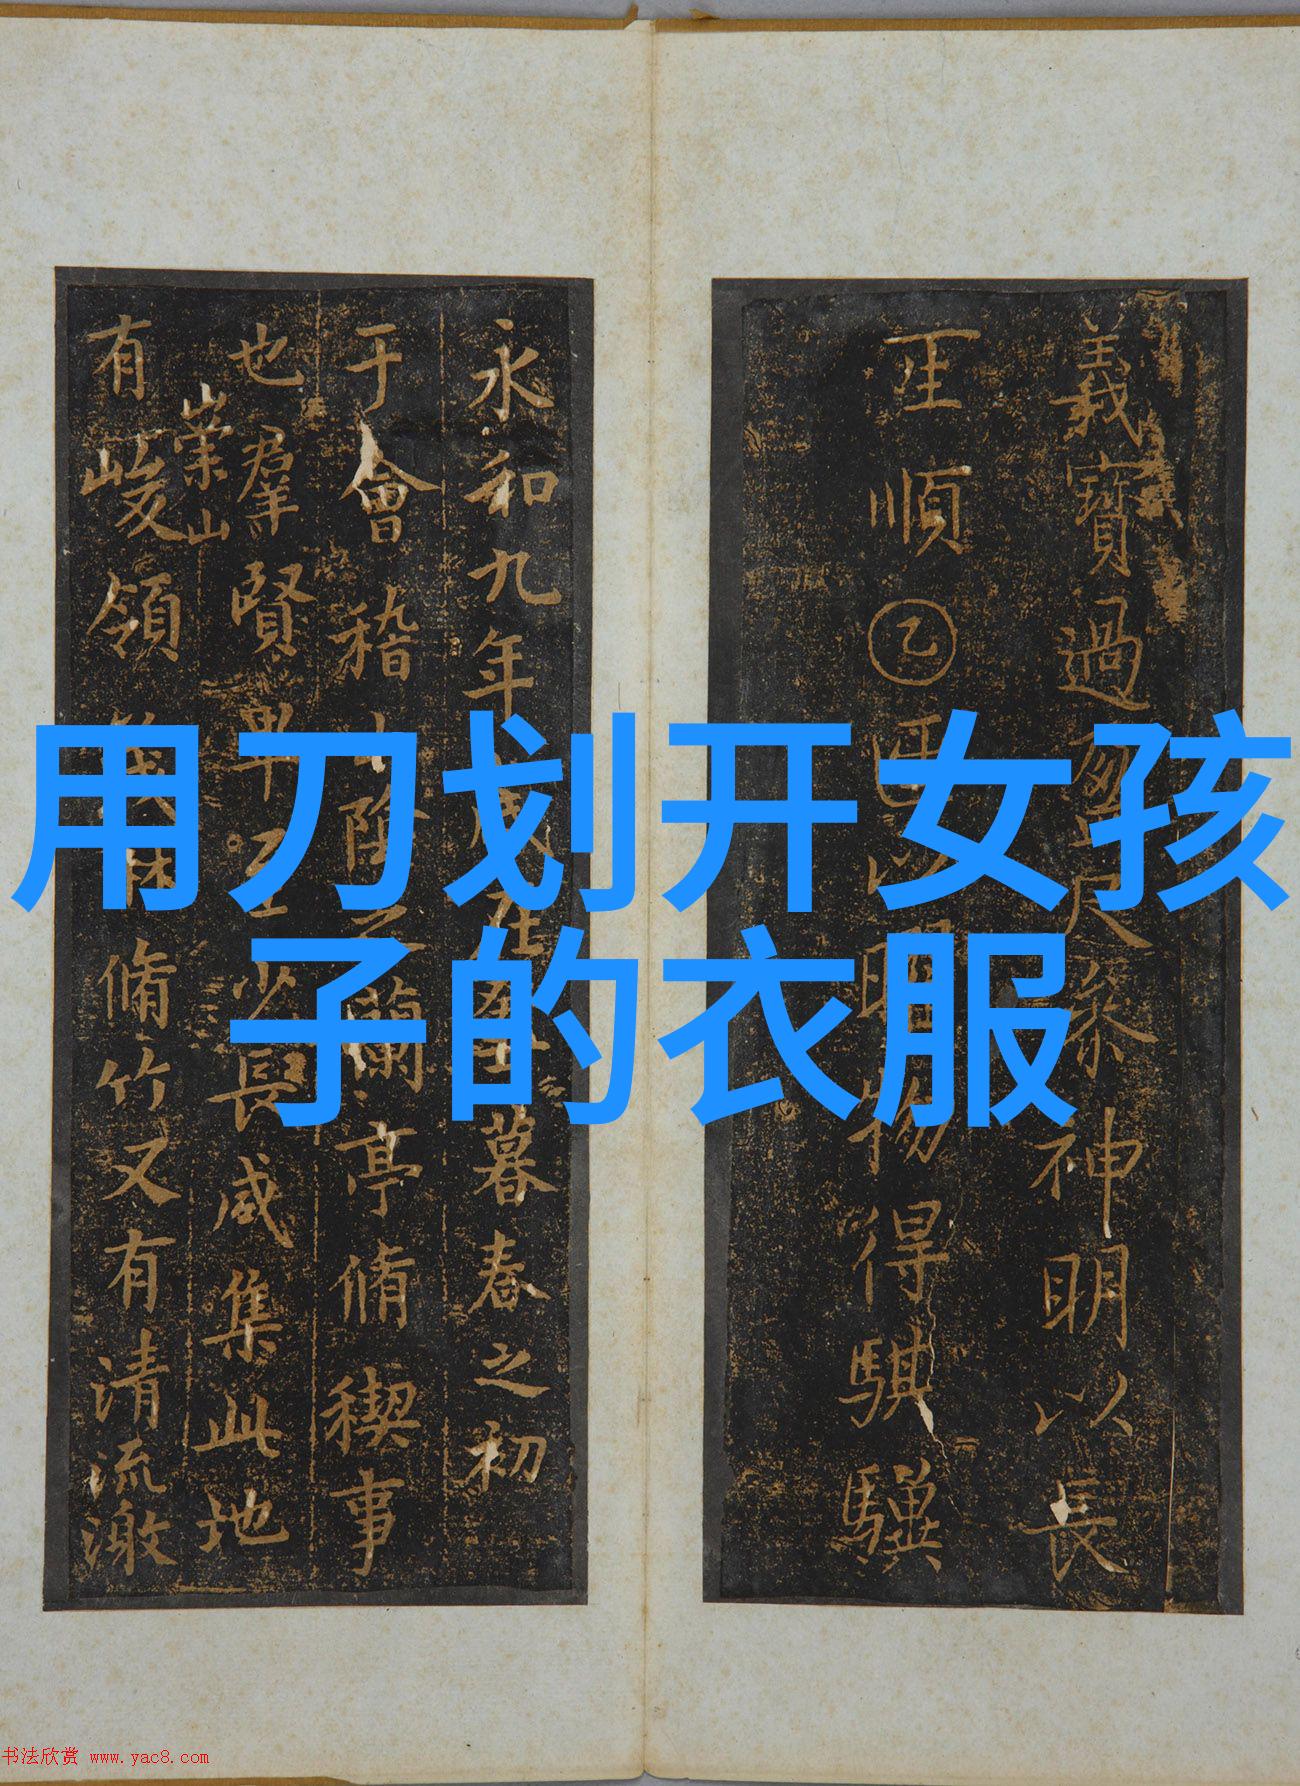 用刀划开女孩
子的衣服
義寶過
神明以長
王順乙
得騏驥
永和九年
暮春之初
于會稽山陰之蘭亭脩禊事
也羣賢畢至少長咸集此地
有崇山
峻領茂林脩竹又有清流激
书法欣赏 www.yac8.com